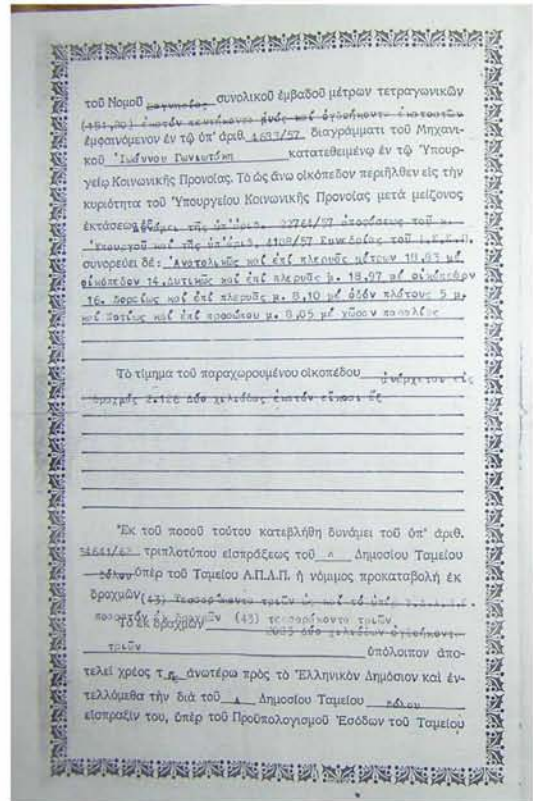 τοῦ Νομοῦ Μαγνησίας συνολικοῦ ἐμβαδοῦ μέτρων τετραγωνικῶν
(151,80) ἑκατόν πεντήκοντα ἑνός καί ὀγδοήκοντα ἑκατοστῶν
ἐμφαινόμενον ἐν τῷ ὑπ' ἀριθ. 4633/57 διαγράμματι τοῦ Μηχανι-
κοῦ Ἰωάννου Γωνιωτάκη κατατεθειμένῳ ἐν τῷ Ὑπουρ-
γείῳ Κοινωνικῆς Προνοίας. Τὸ ὡς ἄνω οἰκόπεδον περιῆλθεν εἰς τὴν
κυριότητα τοῦ Ὑπουργείου Κοινωνικῆς Προνοίας μετὰ μείζονος
ἐκτάσεως δυνάμει τῆς ὑπ' ἀριθ. 22761/57 ἀποφάσεως τοῦ κ.
Ὑπουργοῦ καί τῆς ὑπ' ἀριθ. 4108/57
συνορεύει δέ: Ἀνατολικῶς καί ἐπί πλευρᾶς μέτρων 18,83 μέ
οἰκόπεδον 14, Δυτικῶς καί ἐπί πλευρᾶς μ. 18,97 μέ οἰκόπεδον
16. Βορείως καί ἐπί πλευρᾶς μ. 8,10 μέ ὁδόν πλάτους 5 μ.
καί Νοτίως καί ἐπί προσώπου μ. 8,05 μέ χῶρον παραλίας
Τὸ τίμημα τοῦ παραχωρουμένου οἰκοπέδου ἀνέρχεται εἰς
δραχμάς 2.126 δύο χιλιάδας ἑκατόν εἴκοσι ἕξ
Ἐκ τοῦ ποσοῦ τούτου κατεβλήθη δυνάμει τοῦ ὑπ' ἀριθ.
τριπλοτύπου εἰσπράξεως τοῦ Δημοσίου Ταμείου
Βόλου ὑπὲρ τοῦ Ταμείου Α.Π.Α.Π. ἡ νόμιμος προκαταβολὴ ἐκ
δραχμῶν (43) Τεσσαράκοντα τριῶν ὡς καί τό ὑπέρ
ποσοστόν ἐκ δραχμῶν (43) τεσσαράκοντα τριῶν.
Τὸ ἐκ δραχμῶν 2083 δύο χιλιάδων ὀγδοήκοντα
τριῶν ὑπόλοιπον ἀπο-
τελεῖ χρέος τ ἀνωτέρω πρὸς τὸ Ἑλληνικὸν Δημόσιον καὶ ἐν-
τελλόμεθα τὴν διὰ τοῦ Δημοσίου Ταμείου Βόλου
εἴσπραξίν του, ὑπὲρ τοῦ Προϋπολογισμοῦ Ἐσόδων τοῦ Ταμείου